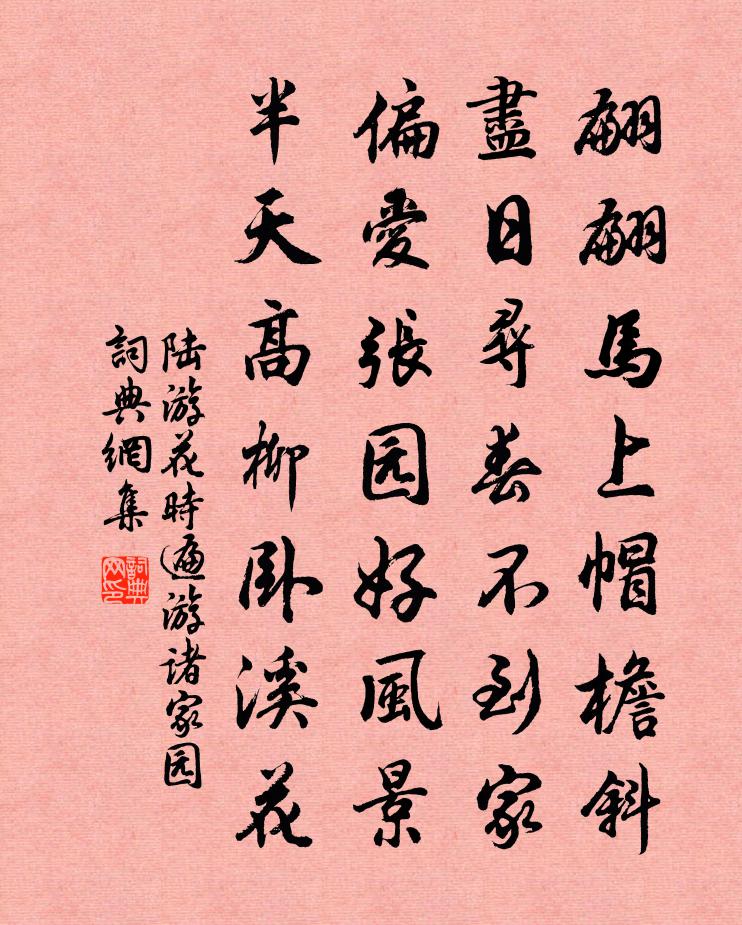 翩翩馬上帽檐斜
盡日尋春不到家
偏愛張园好風景
半天高柳卧溪花
陆游花時遍游诸家园
詞典網集
詞典网印